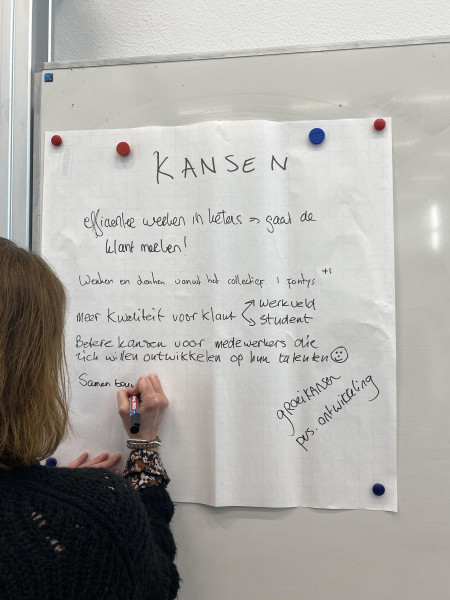 KANSEN
efficientie werken in ketens ⇒ gaat de
klant merken!
Werken en denken vanuit het collectief 1 fontys +1
meer kwaliteit voor klant
werkveld
student
Betere kansen voor medewerkers die
zich willen ontwikkelen op hun talenten ☺
Samen bou
groeikansen
pers. ontwikkeling